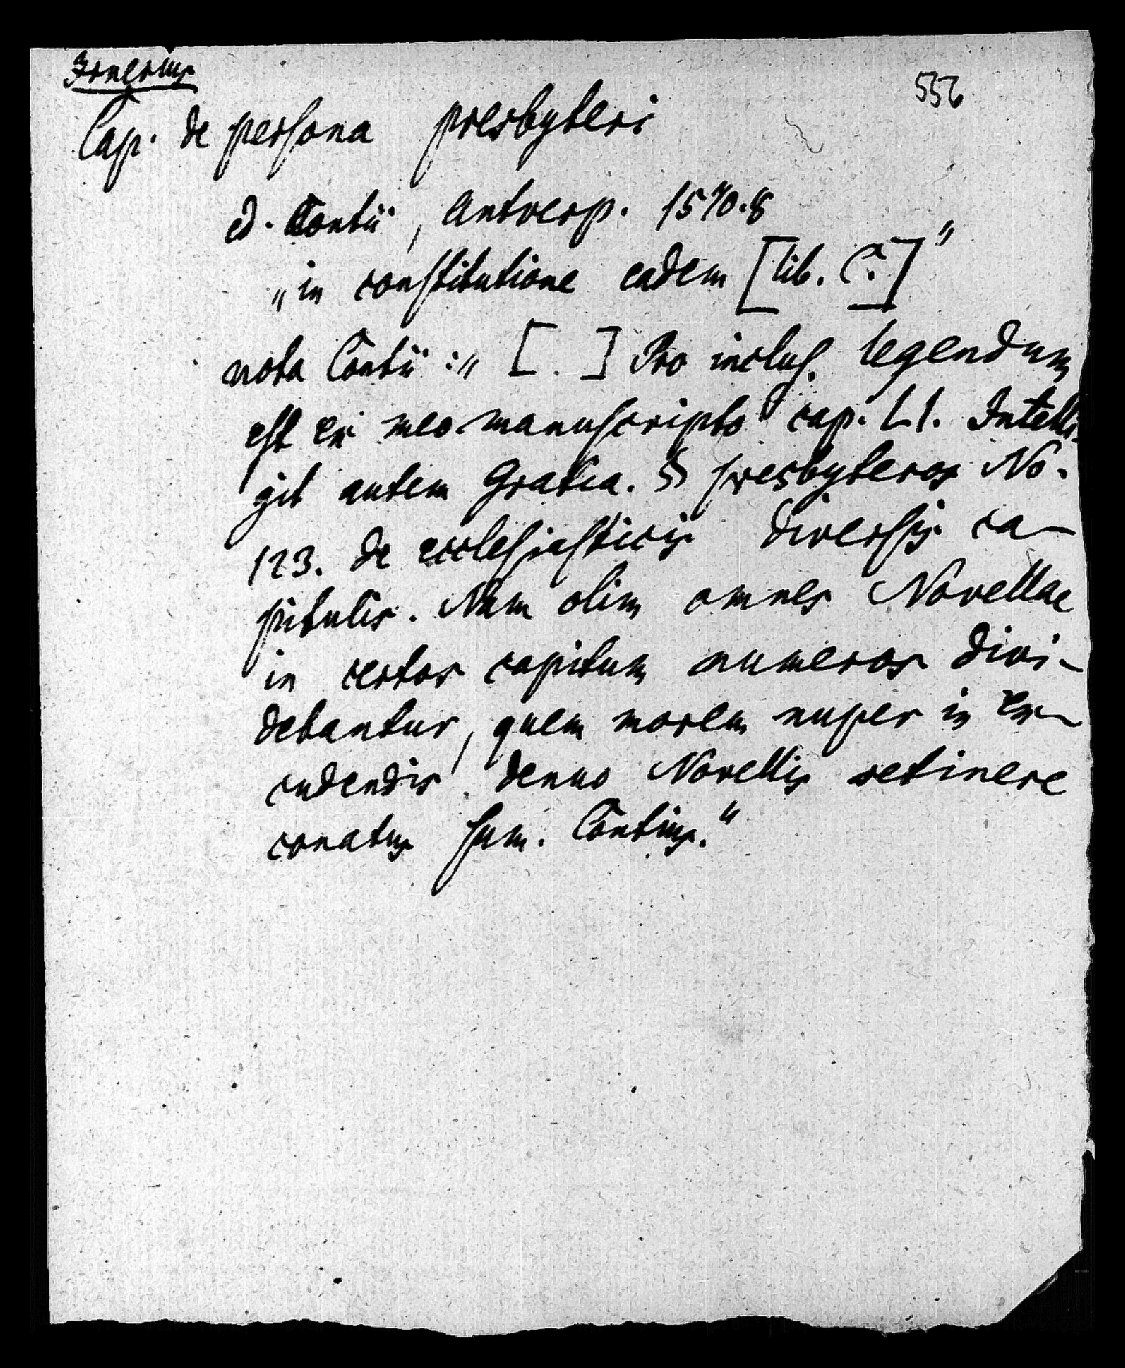 Irnerius
556
Cap. de persona presbyteri
ed. Contii, Antverp. 1570. 8
„in constitutione eadem [lib. C.]"
nota Contii: „[ . ] Pro inclus. legendum
est ex meo manuscripto cap. LI. Intelli-
git autem Gratia. § presbyteros No.
123. de ecclesiasticis diversis ca-
pitulis. Nam olim omnes Novellae
in certos capitum numeros divi-
debantur, quem morem nuper in ex-
cudendis denuo Novellis retinere
conatus sum. Contius."